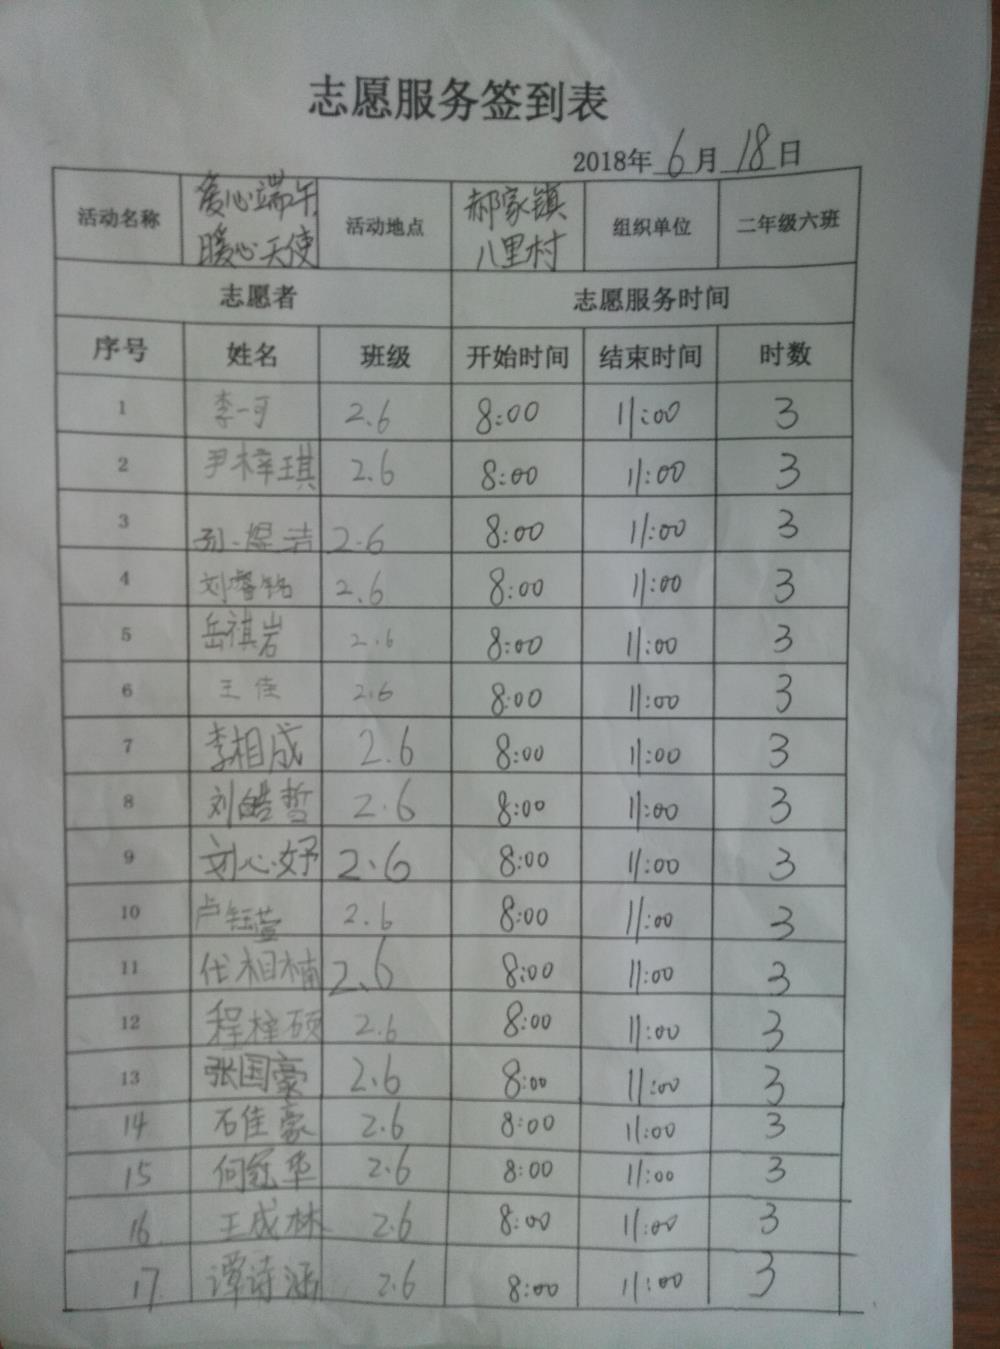 志愿服务签到表
2018年 6 月 18 日
活动名称 爱心端午 暖心天使 活动地点 郝家镇 八里村 组织单位 二年级六班
志愿者 志愿服务时间
序号 姓名 班级 开始时间 结束时间 时数
1 李一可 2.6 8:00 11:00 3
2 尹梓琪 2.6 8:00 11:00 3
3 孙煜洁 2.6 8:00 11:00 3
4 刘睿铭 2.6 8:00 11:00 3
5 岳祺岩 2.6 8:00 11:00 3
6 王佳 2.6 8:00 11:00 3
7 李相成 2.6 8:00 11:00 3
8 刘皓哲 2.6 8:00 11:00 3
9 刘心妤 2.6 8:00 11:00 3
10 卢钰萱 2.6 8:00 11:00 3
11 代相楠 2.6 8:00 11:00 3
12 程梓硕 2.6 8:00 11:00 3
13 张国豪 2.6 8:00 11:00 3
14 石佳豪 2.6 8:00 11:00 3
15 何冠华 2.6 8:00 11:00 3
16 王成林 2.6 8:00 11:00 3
17 谭诗涵 2.6 8:00 11:00 3